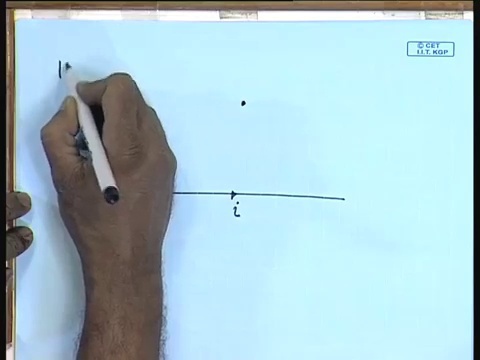 © CET
I.I.T. KGP
i